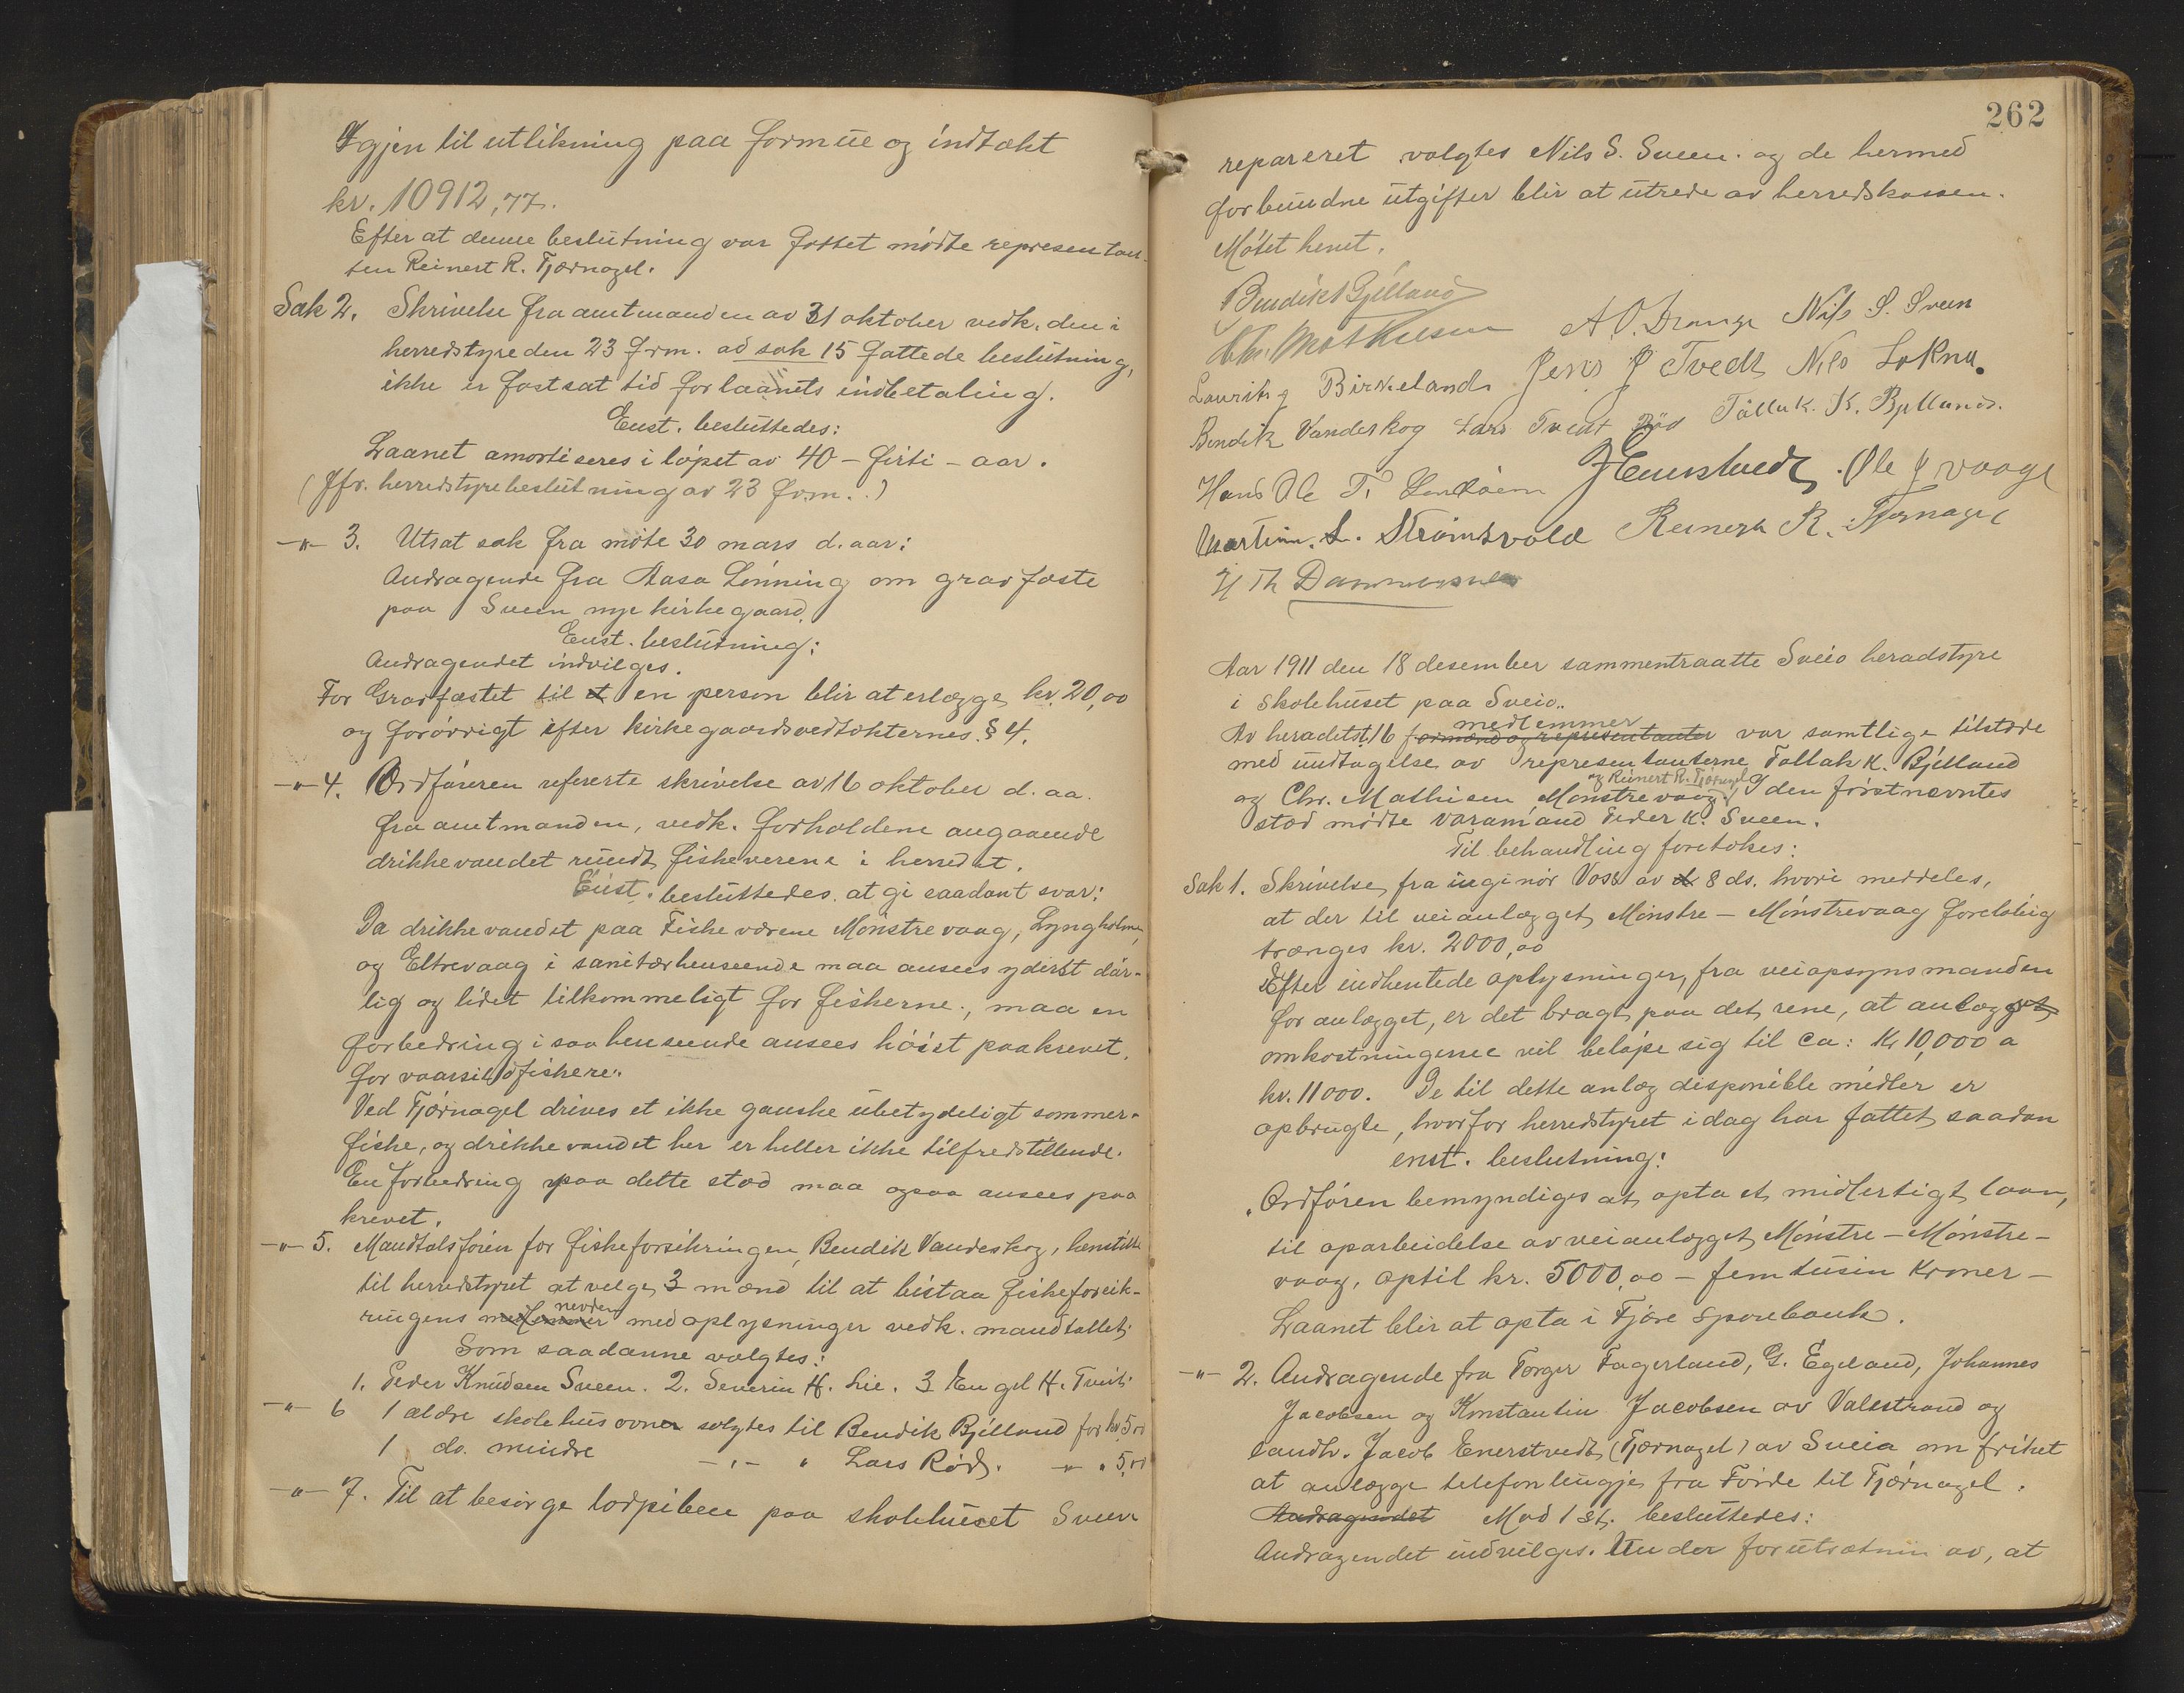 Igjen til utlikning paa formue og indtækt
kr. 10912,77.
Efter at denne beslutning var fattet mødte represen tan-
ten Reinert R. Tjernagel.
Sak 2. Skrivelse fra amtmanden av 31 oktober vedk. den i
herredstyre den 23 f.rm. ad sak 15 fattede beslutning,
ikke er fastsat tid for laanets indbetaling.
Enst. besluttedes:
Laanet amortiseres i løpet av 40 - firti - aar.
(Jfr. herredstyrebeslutning av 23 f.rm..)
-"- 3. Utsat sak fra møte 30 mars d. aar:
Andragende fra Aasa Lønning om gravfæste
paa Sveen nye kirkegaard.
Enst. beslutning:
Andragendet indvilges.
For Gravfæstet til et en person blir at erlægge kr. 20,00
og forøvrigt efter kirkegaardsvedtækternes § 4.
-"- 4. Ordføreren refererte skrivelse av 16 oktober d. aa.
fra amtmanden, vedk. forholdene angaaende
drikkevandet rundt fiskeverene i herredet.
Enst. besluttedes at gi saadant svar:
Da drikkevandet paa Fiskeværene Mønstrevaag, Lyngholmen,
og Eltrevaag i sanitærhenseende maa ansees yderst dår-
lig og lidet tilkommeligt for fiskerne, maa en
forbedring i saa henseende ansees høist paakrevet,
for vaarsildfiskere.
Ved Tjørnagel drives et ikke ganske ubetydeligt sommer-
fiske, og drikkevandet her er heller ikke tilfredstillende.
En forbedring paa dette sted maa ogsaa ansees paa
krevet.
-"- 5. Mandtalsfører for fiskeforsikringen, Bendik Vandeskog, henstillte
til herredstyret at velge 3 mænd til at bistaa fiskeforsik-
ringens medlemmer nevden med oplysninger vedk. mandtallet.
Som saadanne valgtes:
1. Peder Knudsen Sveen. 2. Severin H. Lie. 3 Engel H. Tveit.
-"- 6 1 ældre skolehusovner solgtes til Bendik Bjelland for kr. 5,00
1 do. mindre -"- " Lars Rød. -"- " 5,00
-"- 7. Til at besørge lodpiben paa skolehuset Sveen
262
repareret valgtes Nils S. Sveen. og de hermed
forbundne utgifter blir at utrede av herredskassen.
Møtet hevet.
Bendikt Bjelland
Chr. Mathiesen A. O. Drange Nils S. Sveen
Laurits J Birkeland Jens J Tvedt Nils Lokna.
Bendik Vandeskog Lars Tveit Rød Tollak K. Bjelland.
Hans Ole T. J Enerstvedt Ole J vaage
Martin. L. Strømsvold Reinert R. Tjernagel
Th
Aar 1911 den 18 desember sammentraatte Sveio heradstyre
i skolehuset paa Sveio.
Av heradetst. 16 formænd og representanter medlemmer var samtlige tilstæde
med undtagelse av representanterne Tollak K. Bjelland
og Chr. Mathisen Mønstrevaag og Reinert R. Tjørnagel I den førstnævntes
sted mødte varamand Peder K. Sveen.
Til behandling foretokes:
Sak 1. Skrivelse fra inginør Voss av d 8 ds. hvori meddeles,
at der til veianlægget Mønstre - Mønstrevaag foreløbig
trænges kr. 2000,00
Efter indhentede oplysninger, fra veiopsynsmanden
for anlægget, er det bragt paa det rene, at anlægget
omkostningerne vil beløpe sig til ca: Kr 10,000 a
kr. 11000. De til dette anlæg disponible midler er
opbrugte, hvorfor herredstyret idag har fattet saadan
enst. beslutning:
Ordføren bemyndiges at opta et midlertigt laan,
til oparbeidelse av veianlægget Mønstre - Mønstre-
vaag, optil kr. 5000,00 - femtusin Kroner -
Laanet blir at opta i Fjøre Sparebank.
-"- 2. Andragende fra Torger Fagerland, G. Egeland, Johannes
Jacobsen og Konstantin Jacobsen av Valestrand og
landh. Jacob Enerstvedt (Tjernagel) av Sveia om frihet
at anlægge telefonlingje fra Førde til Tjørnagel.
Andragendet Mod 1 st. besluttedes:
Andragendet indvilges. Under forutsætnin av, at